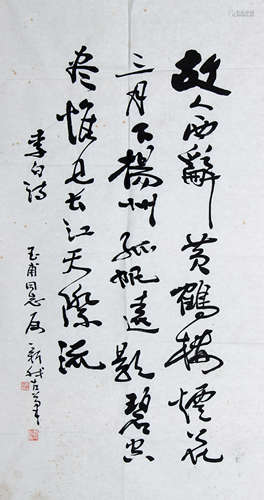 故人西辭黄鶴樓煙花
三月下揚州孤帆遠影碧空
盡惟見長江天際流
李白詩
玉甫同志属